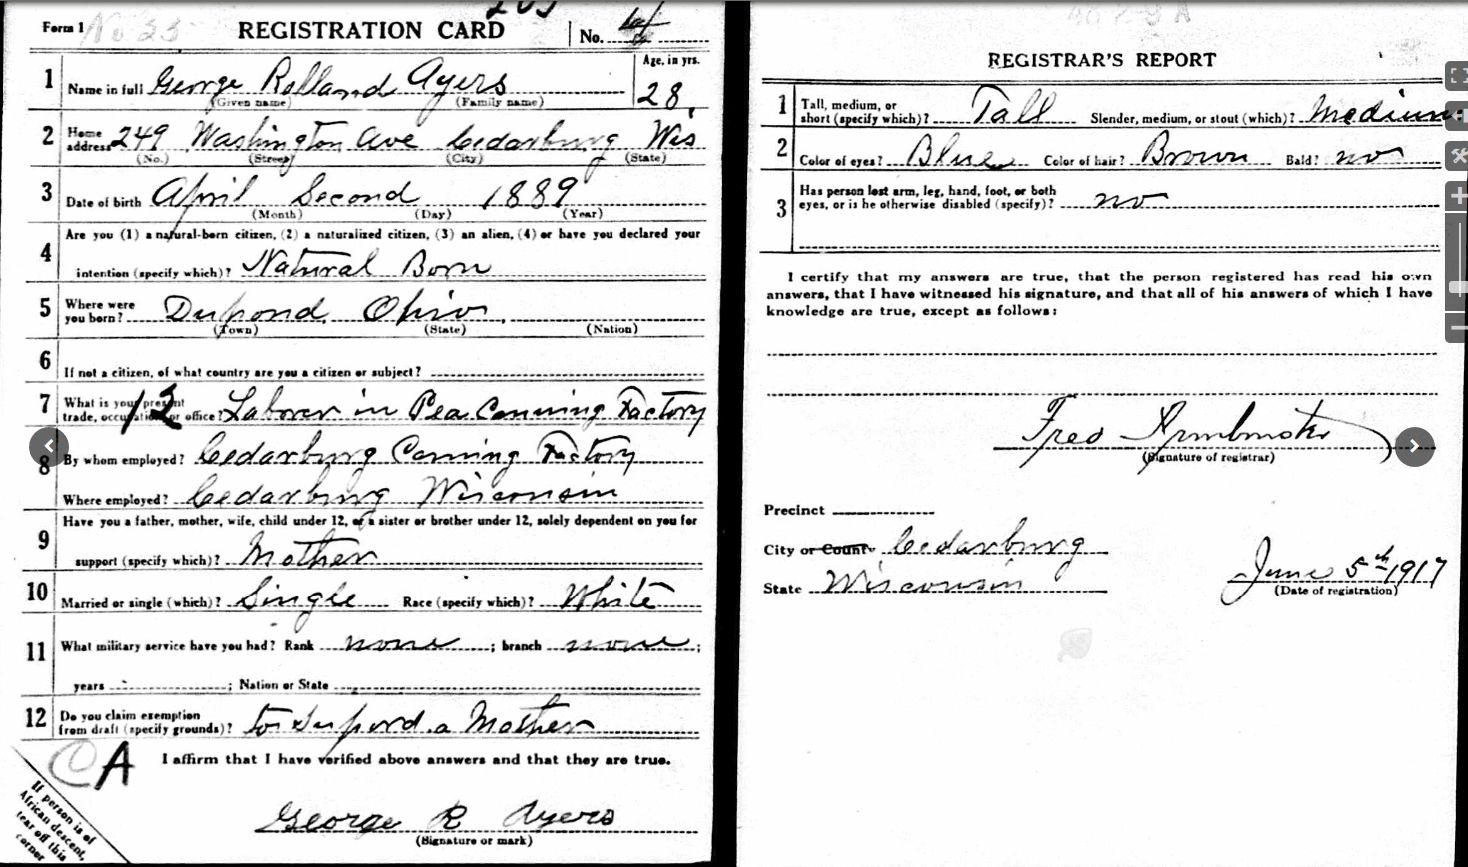 Form 1 No 33 REGISTRATION CARD No.
1 Name in full George Rolland Ayers Age, in yrs. 28
(Given name) (Family name)
2 Home address 249 Washington Ave Cedarburg Wis
(No.) (Street) (City) (State)
3 Date of birth April Second 1889
(Month) (Day) (Year)
4 Are you (1) a natural-born citizen, (2) a naturalized citizen, (3) an alien, (4) or have you declared your
intention (specify which)? Natural Born
5 Where were you born? Dupond Ohio
(Town) (State) (Nation)
6 If not a citizen, of what country are you a citizen or subject?
7 What is your present trade, occupation, or office? 12 Laborer in Pea Canning Factory
8 By whom employed? Cedarburg Canning Factory
Where employed? Cedarburg Wisconsin
9 Have you a father, mother, wife, child under 12, or a sister or brother under 12, solely dependent on you for
support (specify which)? Mother
10 Married or single (which)? Single Race (specify which)? White
11 What military service have you had? Rank none ; branch none ;
years ; Nation or State
12 Do you claim exemption from draft (specify grounds)? to Supord a Mother
CA I affirm that I have verified above answers and that they are true.
George R Ayers
(Signature or mark)
If person is of
African descent,
tear off this
corner
REGISTRAR'S REPORT
1 Tall, medium, or short (specify which)? Tall Slender, medium, or stout (which)? Medium
2 Color of eyes? Blue Color of hair? Brown Bald? no
3 Has person lost arm, leg, hand, foot, or both
eyes, or is he otherwise disabled (specify)? no
I certify that my answers are true, that the person registered has read his own
answers, that I have witnessed his signature, and that all of his answers of which I have
knowledge are true, except as follows:
Fred
(Signature of registrar)
Precinct
City or County Cedarburg
State Wisconsin
June 5th 1917
(Date of registration)